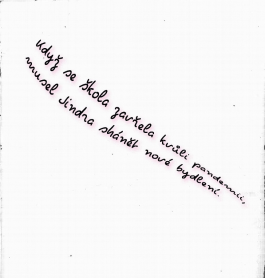 Když se škola zavřela kvůli pandemii,
musel Jindra shánět nové bydlení.